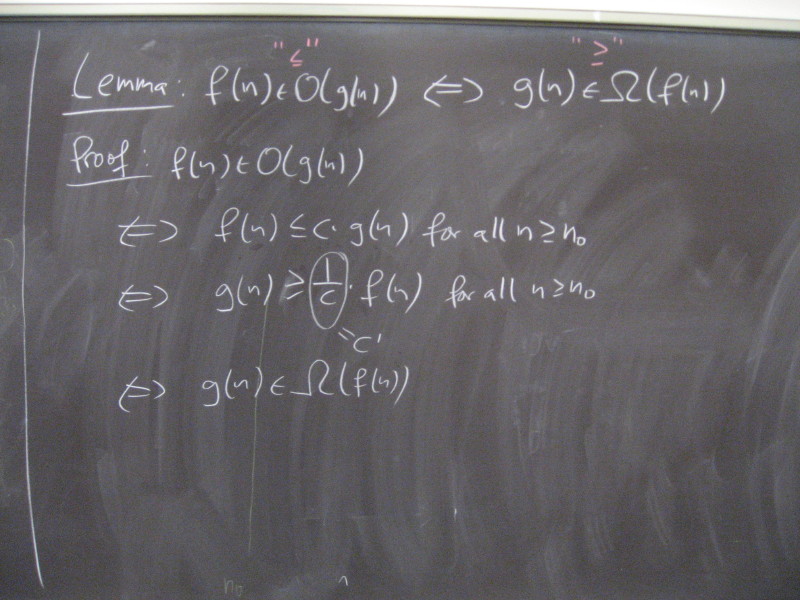 "≤" "≥"
Lemma: f(n) ∈ O(g(n)) ⇔ g(n) ∈ Ω(f(n))
Proof: f(n) ∈ O(g(n))
⇔ f(n) ≤ c · g(n) for all n ≥ n₀
⇔ g(n) ≥ 1/c · f(n) for all n ≥ n₀
= c'
⇔ g(n) ∈ Ω(f(n))
n₀